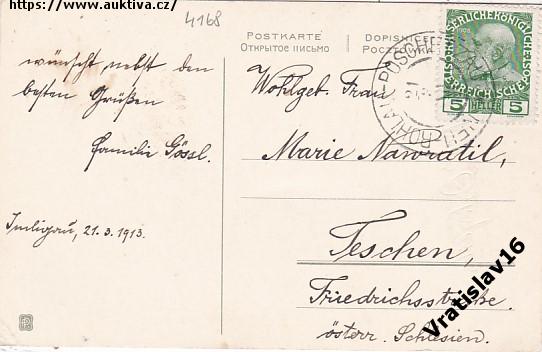 https://www.auktiva.cz/
4168
POSTKARTE
ОТКРЫТОЕ ПИСЬМО
DOPISNICE
POCZTÓWKA
wünscht nebst den
besten Grüßen
Familie Gössl.
21. 3. 1913.
Wohlgeb. Frau
Marie Nawratil,
Teschen,
Friedrichsstraße.
österr. Schlesien.
5 HELLER 5
1908
NEU-ROHLAU
Vratislav16